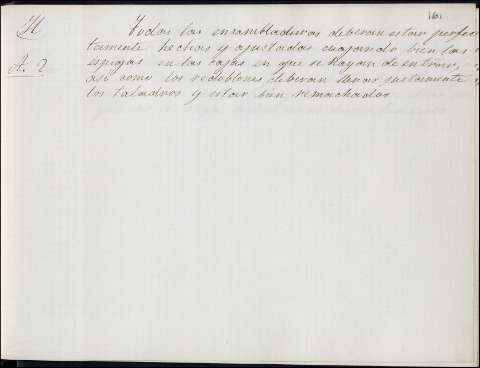 161
H Todas las ensambladuras deberan estar perfec
tamente hechas y ajustadas cuajando bien las
A. 2 espigas en las cajas en que se hayan de entrar,
asi como los redoblones deberan llenar justamente
los taladros y estar bien remachados